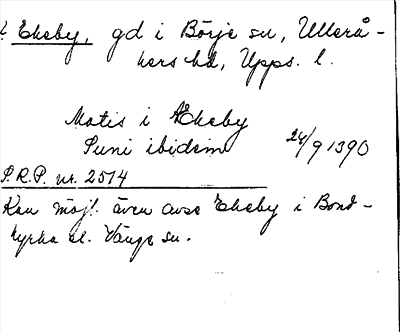 Ekeby, gd i Börje sn, Ullerå-
kers hd, Upps. l.
Matis i Ækeby
Suni ibidem 24/9 1390
S.R.P. nr. 2514
Kan möjl. även avse Ekeby i Bond-
kyrka el. Vänge sn.